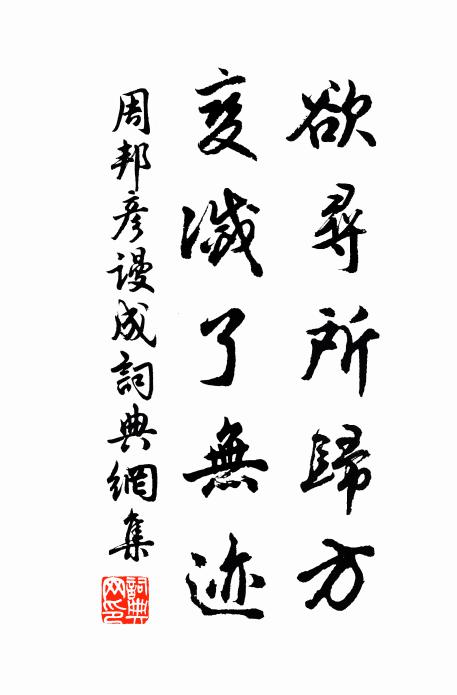 欲尋所歸方
變滅了無迹
周邦彥謾成詞典網集
詞典网印